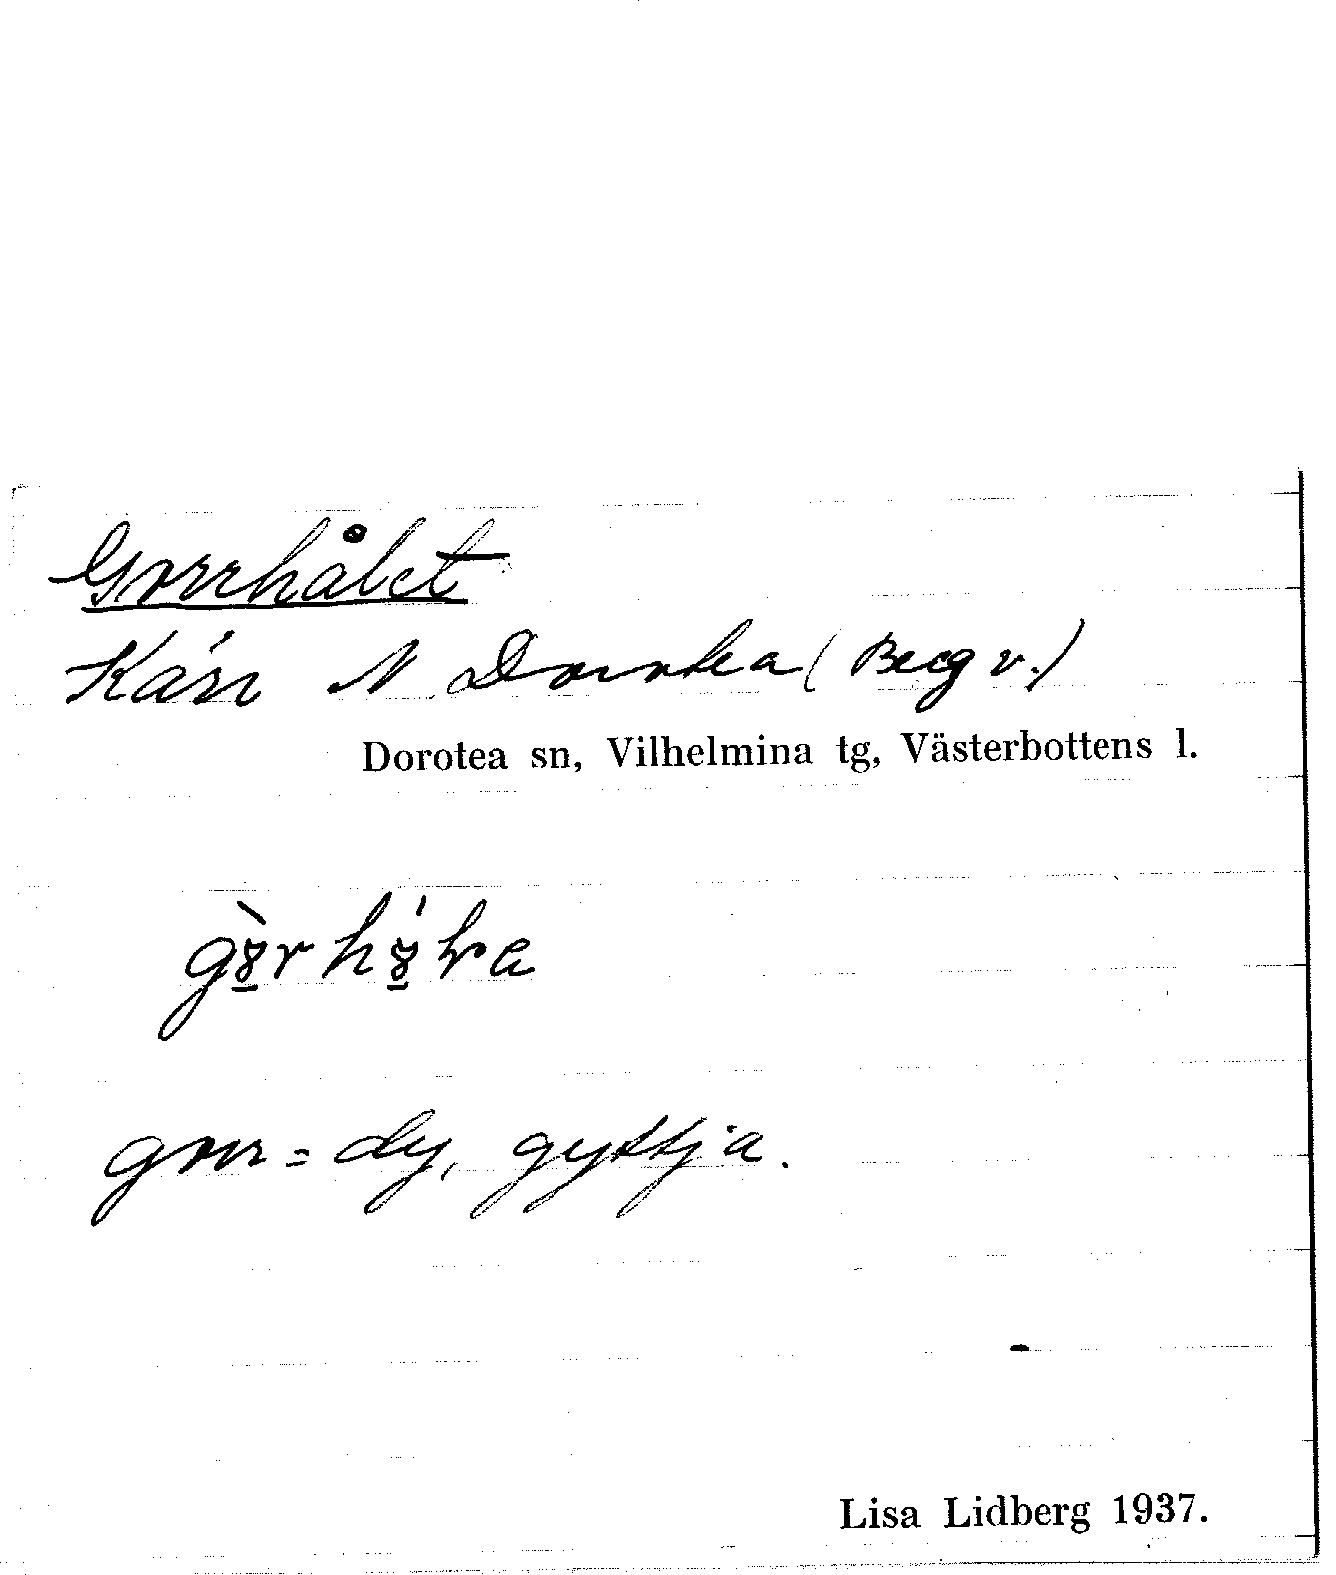 Gorrhålet
Kärr N Dorotea (Berg v.)
Dorotea sn, Vilhelmina tg, Västerbottens l.
gorr = dy, gyttja.
Lisa Lidberg 1937.